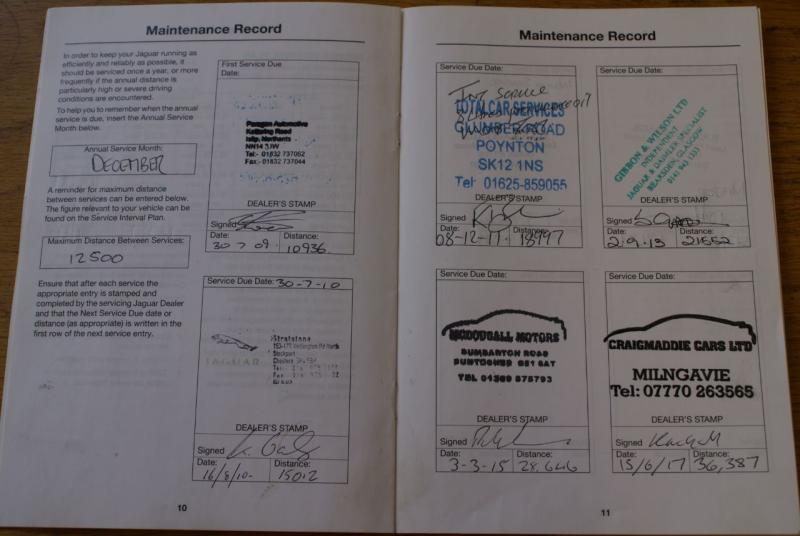 Maintenance Record
In order to keep your Jaguar running as
efficiently and reliably as possible, it
should be serviced once a year, or more
frequently if the annual distance is
particularly high or severe driving
conditions are encountered.
To help you to remember when the annual
service is due, insert the Annual Service
Month below.
Annual Service Month:
DECEMBER
A reminder for maximum distance
between services can be entered below.
The figure relevant to your vehicle can be
found on the Service Interval Plan.
Maximum Distance Between Services:
12500
Ensure that after each service the
appropriate entry is stamped and
completed by the servicing Jaguar Dealer
and that the Next Service Due date or
distance (as appropriate) is written in the
first row of the next service entry.
First Service Due
Date:
Paragon Automotive
Kettering Road
Islip, Northants
NN14 3JW
Tel:- 01832 737062
Fax:- 01832 737044
DEALER'S STAMP
Signed
Date: Distance:
30 7 09. 10936.
Service Due Date: 30-7-10
JAGUAR
Stratstone
Stockport
DEALER'S STAMP
Signed
Date: Distance:
16/8/10- 15012
10
Maintenance Record
Service Due Date:
service
TOTAL CAR SERVICES
CLUMBER ROAD
POYNTON
SK12 1NS
Tel 01625-859055
DEALER'S STAMP
Signed
Date: Distance:
08-12-11. 18997
Service Due Date:
GIBSON & WILSON LTD
INDEPENDENT
JAGUAR & DAIMLER SPECIALIST
BEARSDEN, GLASGOW
DEALER'S STAMP
Signed
Date: Distance:
2.9.13 21552
Service Due Date:
MCDOUGALL MOTORS
DUMBARTON ROAD
DUNTOCHER G81 6AT
TEL 01389 875793
DEALER'S STAMP
Signed
Date: Distance:
3-3-15 28,646
Service Due Date:
CRAIGMADDIE CARS LTD
MILNGAVIE
Tel: 07770 263565
DEALER'S STAMP
Signed
Date: Distance:
15/6/17 36,387
11